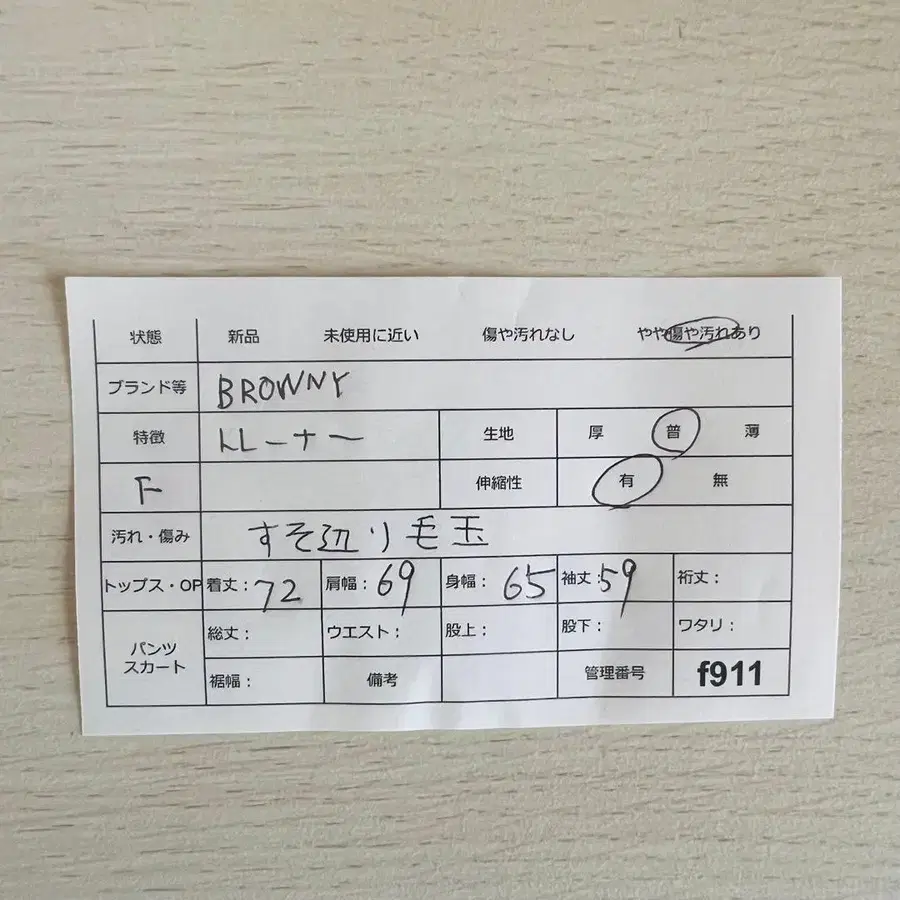 状態 新品 未使用に近い 傷や汚れなし やや傷や汚れあり
ブランド等 BROWNY
特徴 トレーナー 生地 厚 普 薄
F 伸縮性 有 無
汚れ・傷み すそ辺り毛玉
トップス・OP 着丈:72 肩幅:69 身幅:65 袖丈:59 裄丈:
パンツ スカート 総丈: ウエスト: 股上: 股下: ワタリ:
裾幅: 備考 管理番号 f911